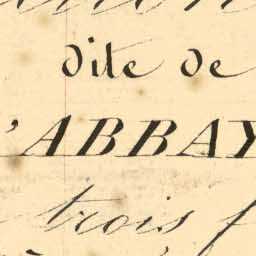 dite de
'ABBAY
trois f